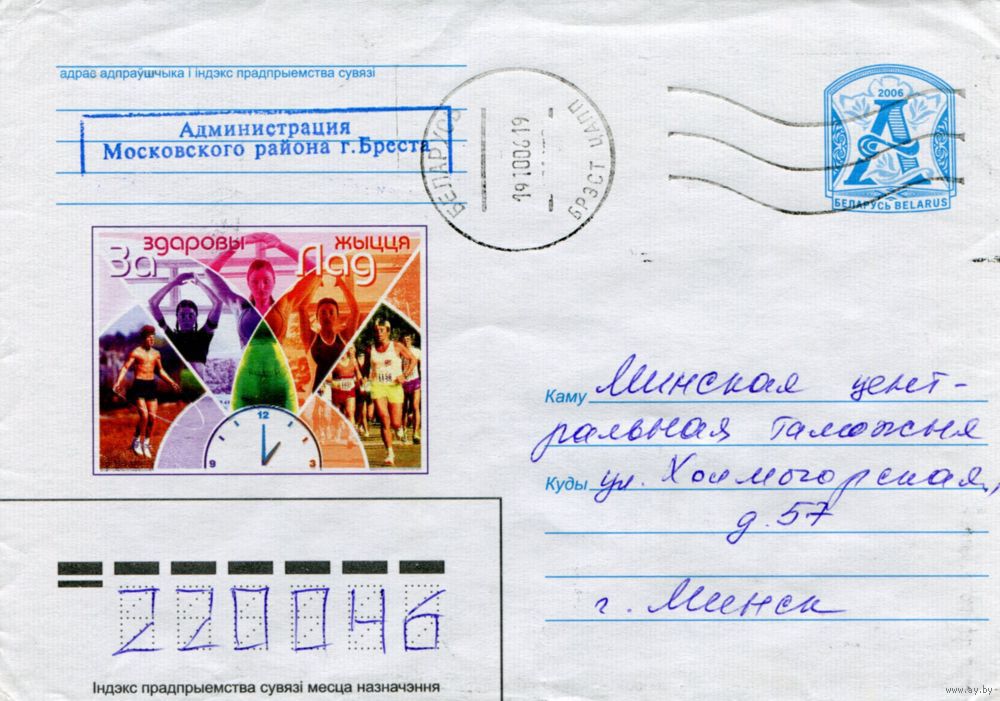 адрас адпраўшчыка і індэкс прадпрыемства сувязі
Администрация
Московского района г.Бреста
БЕЛАРУСЬ
191006 19
БРЭСТ ПАПП
2006
А
БЕЛАРУСЬ BELARUS
За здаровы Лад жыцця
12
9
3
Каму Минская цент-
ральная таможня
Куды ул. Холмогорская,
д. 57
г. Минск
220046
Індэкс прадпрыемства сувязі месца назначэння
www.ay.by